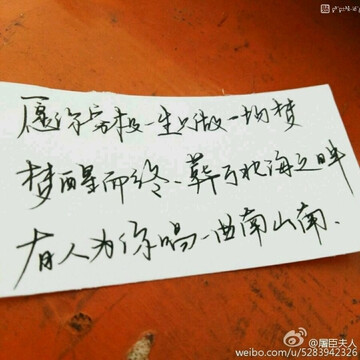 愿你穷极一生只做一场梦
梦醒而终、葬于北海之畔
有人为你唱一曲南山南.
@屠臣夫人
weibo.com/u/5283942326